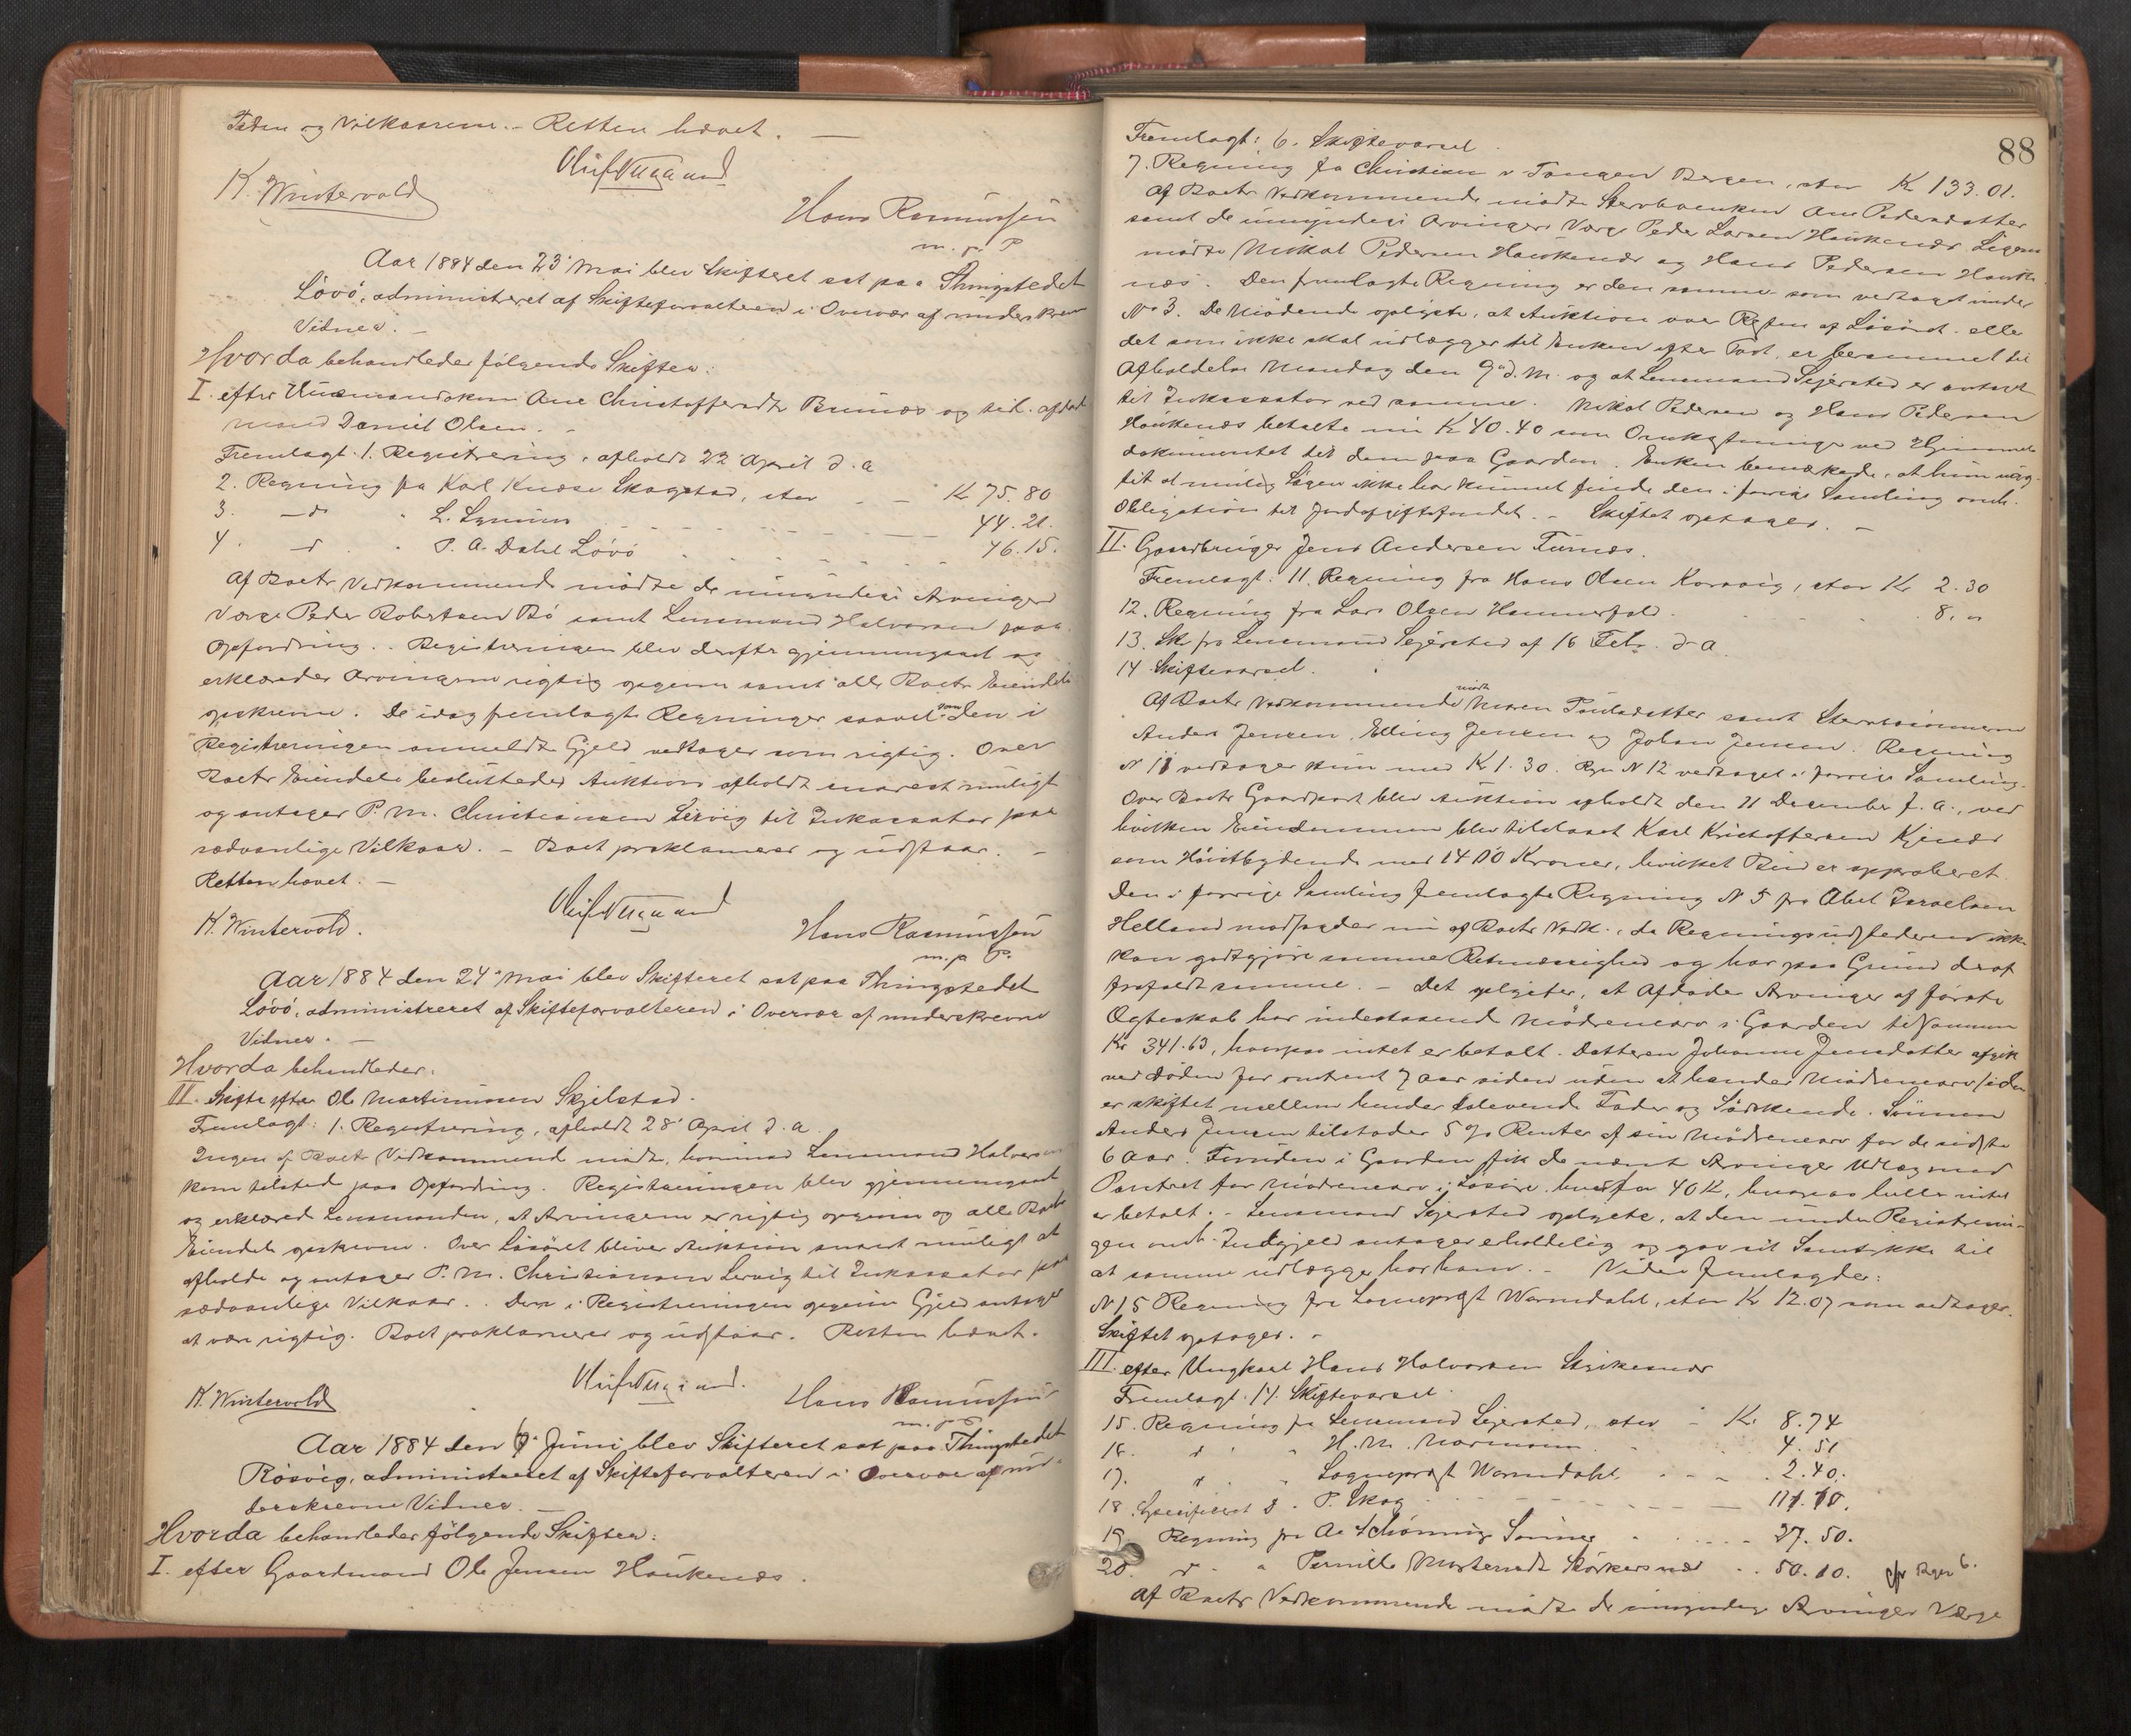 Tiden og Vilkaarene. – Retten hævet. —
K. Wintervold
Hans Rasmussen
m. p. P.
Aar 1884 den 23' Mai blev Skifteret sat paa Thingstedet
Løvø, administreret af Skifteforvalteren i Overvær af underskrevne
Vidner. –
Hvorda behandledes følgende Skifter:
I. efter Huusmandskone Ane Christoffersdtr Brunæs og tidl. afdøde
Mand Daniel Olsen. –
Fremlagt 1. Registrering, afholdt 22 April d. a
2. Regning fra Karl Knæse Skagstad, stor – – Kr 75. 80
3. –d – L. Lynum – – – 44. 21.
4. –d – P. A. Dahl Løvø – – – 46. 15.
Af Boets Vedkommende mødte de umyndige Arvingers
Værge Peder Robertsen Bø samt Lensmand Halvorsen paa
Opfordring. – Registreringen blev derefter gjennemgaaet og
erklæredes Arvingerne rigtig opgivne samt alle Boets Eiendele
opskrevne. De idag fremlagte Regninger saavel som den i
Registreringen anmeldte Gjeld vedtoges som rigtig. Over
Boets Eiendele besluttedes Auktion afholdt snarest muligt
og antages P. M. Christiansen Lervig til Inkassator paa
sædvanlige Vilkaar. – Boet proklameres og udstaar. –
Retten hævet. –
K. Wintervold.
Hans Rasmussen
m. p. P.
Aar 1884 den 24' Mai blev Skifteret sat paa Thingstedet
Løvø, administreret af Skifteforvalteren i Overvær af underskrevne
Vidner. –
Hvorda behandledes:
II. Skifte efter Ole Martinussen Skjelstad.
Fremlagt: 1. Registrering, afholdt 28' April d. a.
Ingen af Boets Vedkommende mødte, hvorimod Lensmand Halvorsen
kom tilstede paa Opfordring. Registreringen blev gjennemgaaet
og erklærede Lensmanden, at Arvingerne er rigtig opgivne og alle Boets
Eiendele opskrevne. Over Løsøret bliver Auktion snarest muligt at
afholde og antages P. M. Christiansen Lervig til Inkassator paa
sædvanlige Vilkaar. – Den i Registreringen opgivne Gjeld antages
at være rigtig. Boet proklameres og udstaar. Retten hævet.
K. Wintervold
Hans Rasmussen
m. p. P.
Aar 1884 den 6' Juni blev Skifteret sat paa Thingstedet
Røsvig, administreret af Skifteforvalteren i Overvær af un-
derskrevne Vidner. –
Hvorda behandledes følgende Skifter:
I. efter Gaardmand Ole Jensen Haukenæs.
88
Fremlagt: 6. Skiftevarsel.
7. Regning fra Christian v Tangen Bergen, stor Kr 133. 01.
Af Boets Vedkommende mødte Stervboenken Ane Pedersdatter
samt de umyndige Arvingers Værge Peder Larsen Haukenæs. Ligesaa
mødte Nikol Pedersen Haukenæs og Hans Pedersen Hauke-
næs. Den fremlagte Regning er den samme som vedtaget under
No 3. De Mødende oplyste, at Auktion over Resten af Løsøret eller
det som ikke skal udlægges til Enken efter Taxt, er berammet til
Afholdelse Mandag den 9' d. M. og at Lensmand Sejersted er antaget
til Inkassator ved samme. Nikol Pedersen og Hans Pedersen
Haukenæs betalte nu Kr 40. 40 som Omkostninger ved Hjemmels-
dokumentet til dem paa Gaarden. Enken bemærkede, at hun uag-
tet al mulig Søgen ikke har kunnet finde den i forrige Samling omh.
Obligation til Jordafgiftsfondet. – Skiftet optages. –
II. Gaardbruger Jens Andersen Furnæs.
Fremlagt: 11. Regning fra Hans Olsen Korsvig, stor Kr 2. 30
12. Regning fra Lars Olsen Hammerfald. – – 8. "
13. Sk. fra Lensmand Sejersted af 16 Febr. d. a.
14 Skiftevarsel.
Af Boets Vedkommende mødte Maren Paulsdatter samt Stervbosønnerne
Anders Jensen, Elling Jensen og Johan Jensen. Regning
N 11 vedtages kun med Kr 1. 30. Rgn N 12 vedtaget i forrige Samling.
Over Boets Gaardpart blev Auktion afholdt den 11 December f. a., ved
hvilken Eiendommen blev tilslaaet Karl Kristoffersen Kjenæs
som Høistbydende med 1400 Kroner, hvilket Bud er approberet.
Den i forrige Samling fremlagte Regning N 5 fra Abel Israelsen
Helland modsagdes nu af Boets Vedk., da Regningsudstederen ikke
kan godtgjøre sammes Retmæssighed og har paa Grund deraf
frafaldt samme. – Det oplystes, at Afdødes Arvinger af første
Ægteskab har indestaaende Mødrenearv i Gaarden tilsammen
Kr 341. 63, hvorpaa intet er betalt. Datteren Johanna Jensdatter afgik
ved Døden for omtrent 7 Aar siden uden at hendes Mødrenearv siden
er skiftet mellem hendes Eslevende Fader og Sødskende. Sønnen
Anders Jensen tilstodes 5 % Renter af sin Mødrenearv for de sidste
6 Aar. Foruden i Gaarden fik de nævnte Arvinger Udlæg med
Panteret for Mødrenearv i Løsøre hver for 40 Kr, hvorpaa heller intet
er betalt. – Lensmand Sejersted oplyste, at den under Registrerin-
gen omh. Indgjeld antages erholdelig og gav sit Samtykke til
at samme udlægges hos ham. – Videre fremlagdes:
N 15 Regning fra Sogneprest Warmdahl, stor Kr 12. 07 som vedtages.
Skiftet optages. –
III. efter Ungkarl Hans Halvorsen
Fremlagt. 14. Skiftevarsel.
15. Regning fra Lensmand Sejersted, stor – Kr. 8. 74
16. d – H. M. Normann – – 4. 51
17. d – Sogneprest Warmdahl – – 2. 40.
18. Specificeret d. P. Skog – – –
19 Regning fra A. Schønning Sønner – – 27. 50.
20. d – Pernille Mortensdt – – 50. 10. cfr Rgn 6.
Af Boets Vedkommende mødte de umyndige Arvingers Værge